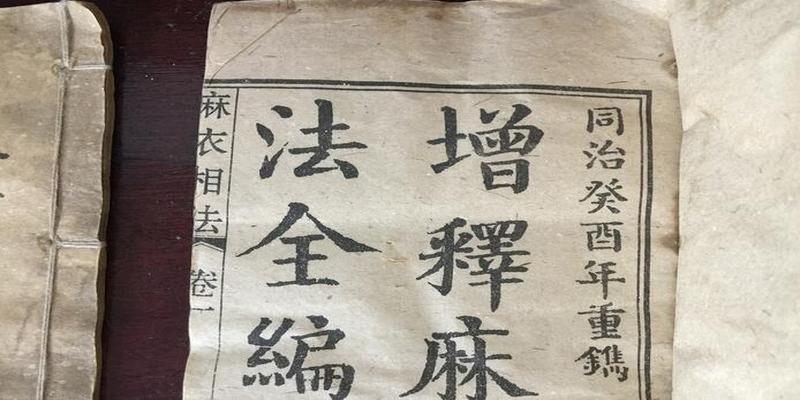 同治癸酉年重鐫
增釋麻
法全編
麻衣相法
卷一